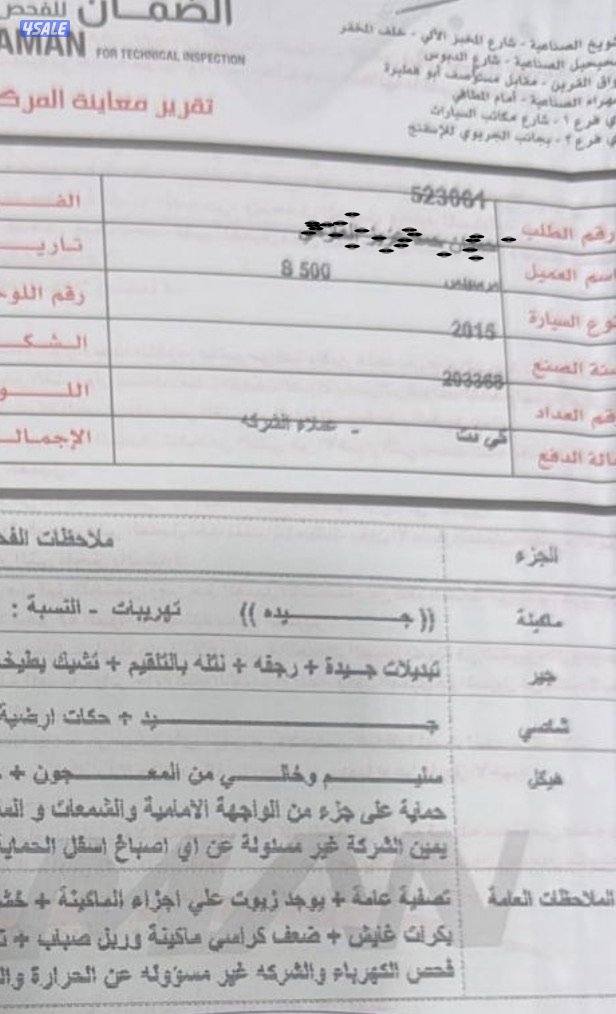 4SALE
الضمــان للفحص
AMAN FOR TECHNICAL INSPECTION
الصناعية - شارع المخبز الآلي - خلف المخفر
الصناعية - شارع الدبوس
القرين - مقابل مستوصف أبو فطيرة
الصناعية - أمام المطافي
فرع ١ - شارع مكاتب السيارات
فرع ٢ - بجانب الجريوي للإسفنج
تقرير معاينة المرك
رقم الطلب 523061 الفـ
اسم العميل تاريـ
نوع السيارة مرسيدس S 500 رقم اللوح
سنة الصنع 2015 الشكـ
رقم العداد 203368 اللــو
حالة الدفع كي نت - عملاء الشركه الإجمالـ
الجزء ملاحظات الفح
ماكينة (( جـــــيده )) تهريبات - النسبة :
جير تبديلات جـيدة + رجفه + نتله بالتلقيم + تشيك بطيخ
شاصي جـــــيد + حكات ارضية
هيكل سليـــم وخالـــي من المعـــجون +
حماية على جزء من الواجهة الامامية والشمعات و
يمين الشركة غير مسئولة عن اي اصباغ اسفل الحماية
الملاحظات العامة تصفية عامة + يوجد زيوت علي اجزاء الماكينة +
بكرات قايش + ضعف كراسي ماكينة وربل صباب +
فحص الكهرباء والشركه غير مسؤوله عن الحرارة